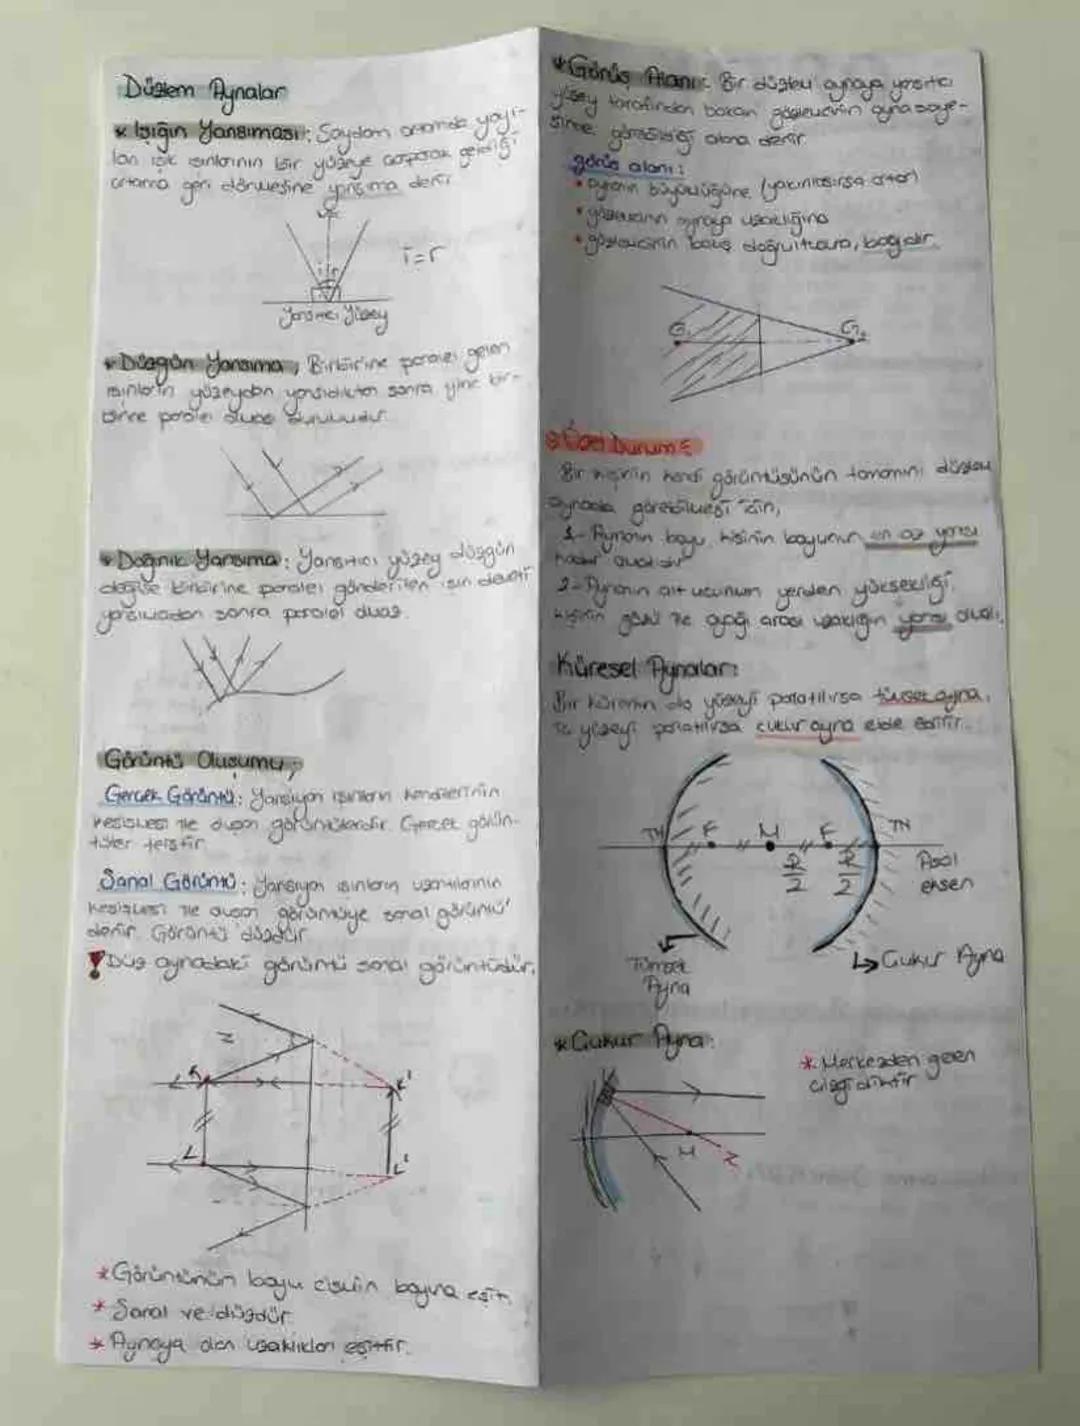 Düzlem Aynalar
* Işığın Yansıması: Saydam ortamda yayı-
lan ışık ışınlarının bir yüzeye çarparak geldiği
ortama geri dönmesine yansıma denir
N
i r
i=r
Yansıtıcı Yüzey
* Düzgün Yansıma, Birbirine paralel gelen
ışınların yüzeyden yansıdıktan sonra yine bir-
birine paralel olması durumudur.
* Dağınık Yansıma: Yansıtıcı yüzey düzgün
değilse birbirine paralel gönderilen ışın demeti
yansımadan sonra paralel olmaz.
Görüntü Oluşumu;
Gerçek Görüntü: Yansıyan ışınların kendilerinin
kesişmesi ile oluşan görüntülerdir. Gerçek görün-
tüler terstir
Sanal Görüntü: Yansıyan ışınların uzantılarının
kesişmesi ile oluşan görüntüye sanal görüntü
denir. Görüntü düzdür
! Düz aynadaki görüntü sanal görüntüdür.
N
K K'
L L'
* Görüntünün boyu cismin boyuna eşit
* Sanal ve düzdür
* Aynaya olan uzaklıkları eşittir.
* Görüş Alanı: Bir düzlem aynaya yansıtıcı
yüzey tarafından bakan gözlemcinin ayna saye-
sinde görebildiği alana denir
görüş alanı:
• aynanın büyüklüğüne (yakınlaşırsa artar)
• gözlemcinin aynaya uzaklığına
• gözlemcinin bakış doğrultusuna, bağlıdır.
G₁ G₂
Özel Durum:
Bir kişinin kendi görüntüsünün tamamını düzlem
aynada görebilmesi için,
1- Aynanın boyu, kişinin boyunun en az yarısı
kadar olmalıdır
2- Aynanın alt ucunun yerden yüksekliği,
kişinin gözü ile ayağı arası uzaklığın yarısı olmalı.
Küresel Aynalar:
Bir kürenin dış yüzeyi parlatılırsa tümsek ayna,
iç yüzeyi parlatılırsa çukur ayna elde edilir.
TN F M F TN
R/2 R/2
Asal
eksen
Tümsek
Ayna
↳ Çukur Ayna
* Çukur Ayna:
* Merkezden geçen
çizgi diktir
M
N